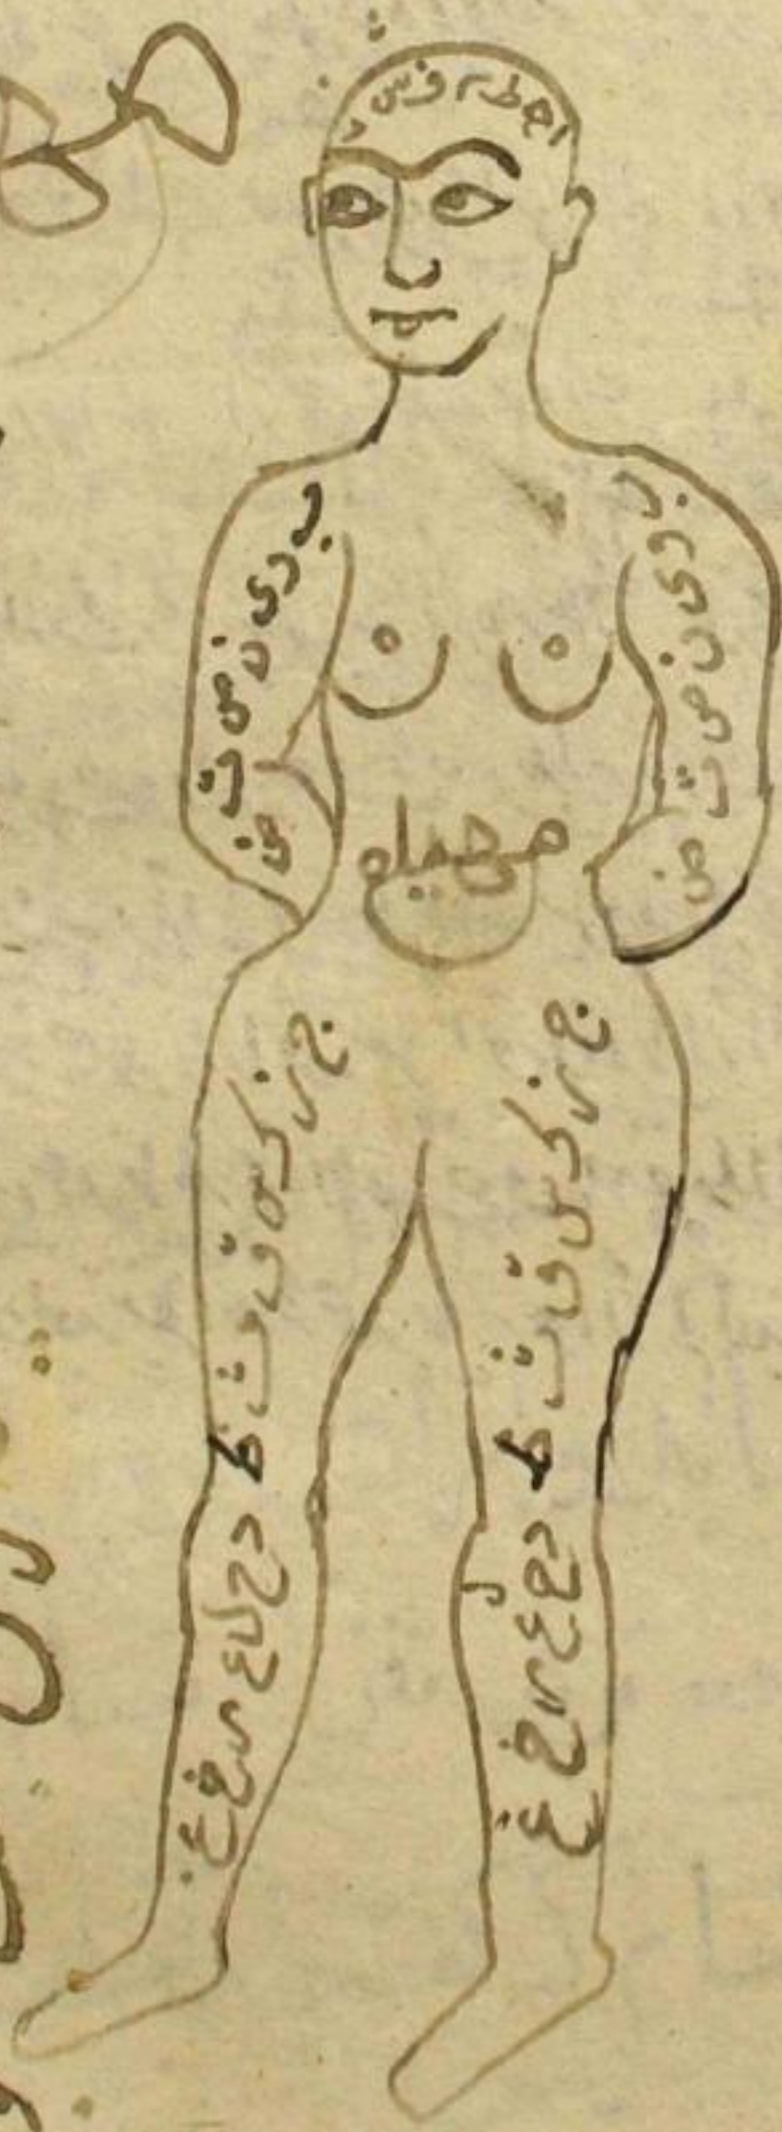 ا ه ط م ف ش ذ
ب و ی ن ص ت ض
ب و ی ن ص ت ض
ج ز ک س ق ث ظ
ج ز ک س ق ث ظ
د ح ل ع ر خ غ
د ح ل ع ر خ غ